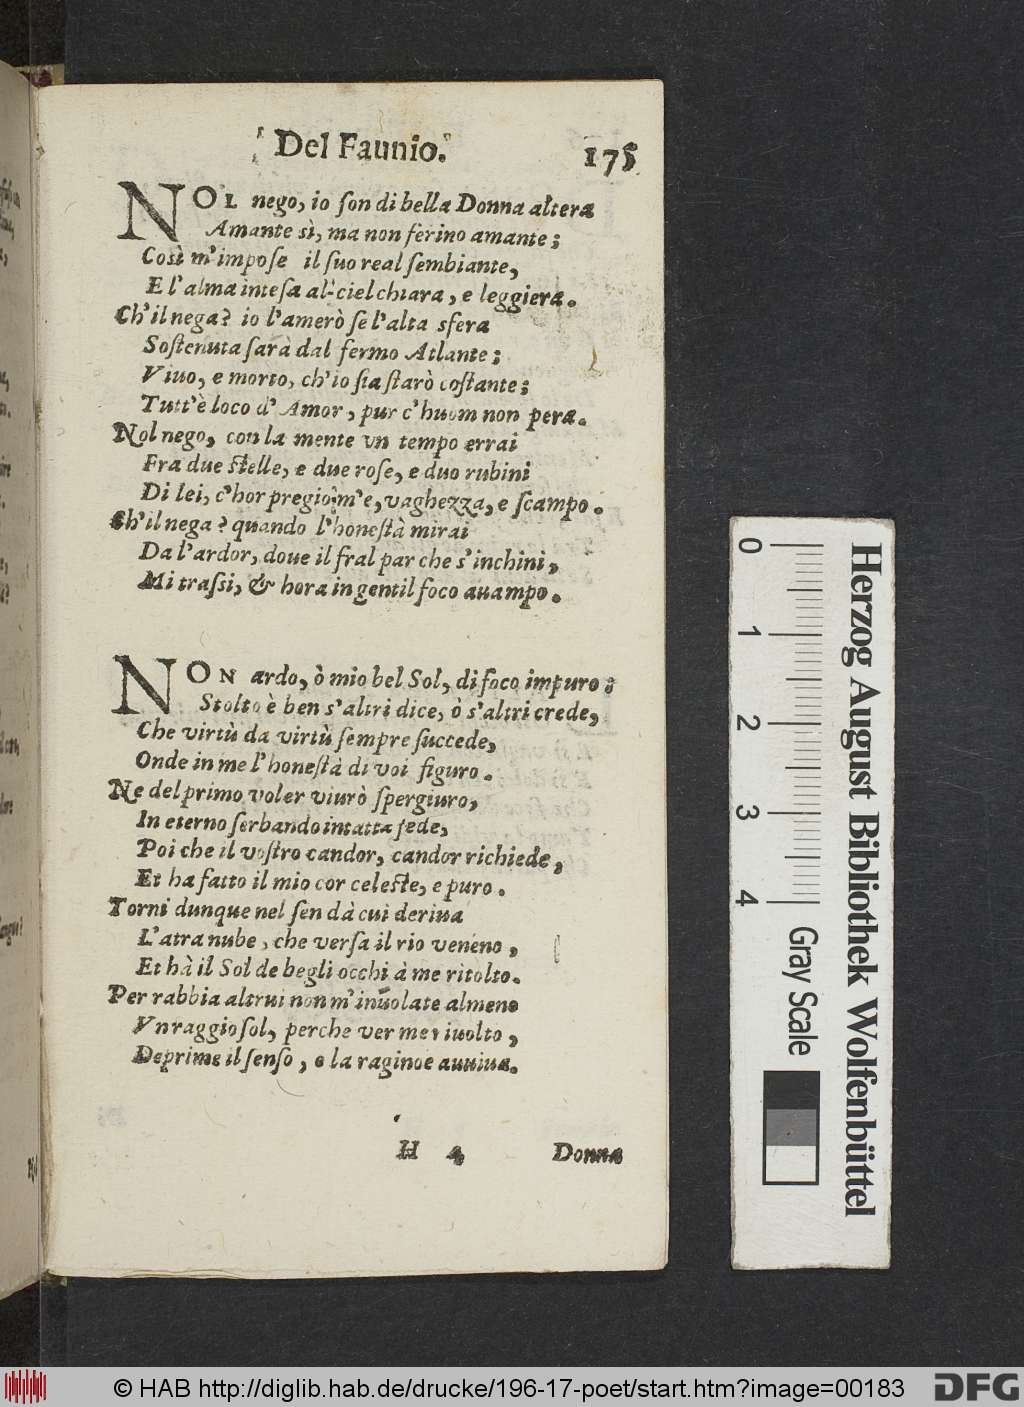 Del Faunio.
175
NOL nego, io ſon di bella Donna altera
Amante sì, ma non ferino amante;
Così m'impoſe il ſuo real ſembiante,
E l'alma inteſa al ciel chiara, e leggiera.
Ch'il nega? io l'amerò ſe l'alta sfera
Soſtenuta ſarà dal fermo Atlante;
Viuo, e morto, ch'io ſia ſtarò coſtante;
Tutt'è loco d' Amor, pur c'huom non pera.
Nol nego, con la mente vn tempo errai
Fra due ſtelle, e due roſe, e duo rubini
Di lei, c'hor pregio m'e, vaghezza, e ſcampo.
Ch'il nega? quando l'honeſtà mirai
Da l'ardor, doue il fral par che s'inchini,
Mi traſsi, & hora in gentil foco auampo.
NON ardo, ò mio bel Sol, di foco impuro;
Stolto è ben s'altri dice, ò s'altri crede,
Che virtù da virtù ſempre ſuccede,
Onde in me l'honeſtà di voi figuro.
Ne del primo voler viurò ſpergiuro,
In eterno ſerbando intatta fede,
Poi che il voſtro candor, candor richiede,
Et ha fatto il mio cor celeſte, e puro.
Torni dunque nel ſen dà cui deriua
L'atra nube, che verſa il rio veneno,
Et hà il Sol de begli occhi à me ritolto.
Per rabbia altrui non m'inuolate almeno
Vn raggio ſol, perche ver me riuolto,
Deprime il ſenſo, e la raginoe auuiua.
H 4
Donna
0
1
2
3
4
Gray Scale
Herzog August Bibliothek Wolfenbüttel
© HAB http://diglib.hab.de/drucke/196-17-poet/start.htm?image=00183
DFG